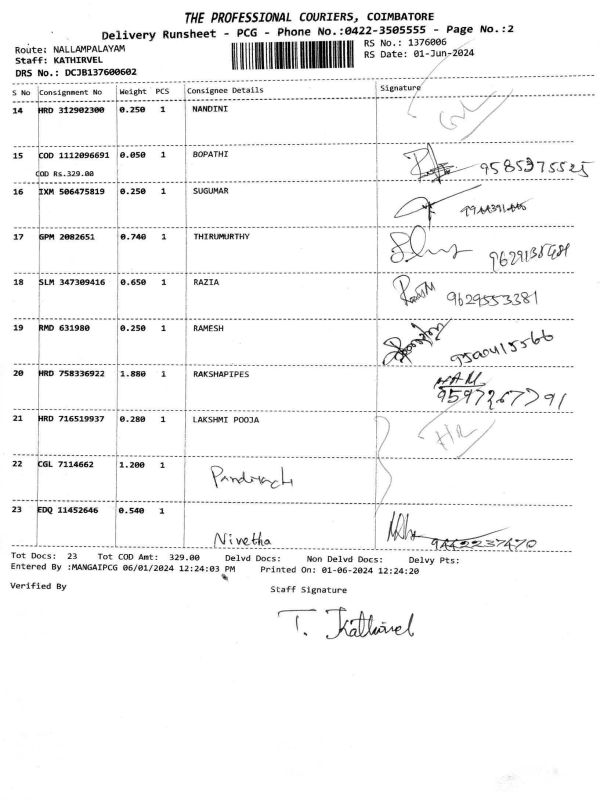 THE PROFESSIONAL COURIERS, COIMBATORE
Delivery Runsheet - PCG - Phone No.:0422-3505555 - Page No.:2
Route: NALLAMPALAYAM
RS No.: 1376006
Staff: KATHIRVEL
RS Date: 01-Jun-2024
DRS No.: DCJB137600602
S No Consignment No Weight PCS Consignee Details Signature
14 HRD 312902300 0.250 1 NANDINI
15 COD 1112096691 0.050 1 BOPATHI 9585375525
COD Rs.329.00
16 IXM 506475819 0.250 1 SUGUMAR
17 GPM 2082651 0.740 1 THIRUMURTHY
18 SLM 347309416 0.650 1 RAZIA 9629553381
19 RMD 631980 0.250 1 RAMESH 9500415566
20 HRD 758336922 1.880 1 RAKSHAPIPES 9597267791
21 HRD 716519937 0.280 1 LAKSHMI POOJA
22 CGL 7114662 1.200 1
23 EDQ 11452646 0.540 1 Nivetha 9442237470
Tot Docs: 23 Tot COD Amt: 329.00 Delvd Docs: Non Delvd Docs: Delvy Pts:
Entered By :MANGAIPCG 06/01/2024 12:24:03 PM Printed On: 01-06-2024 12:24:20
Verified By Staff Signature
T. Kathirvel